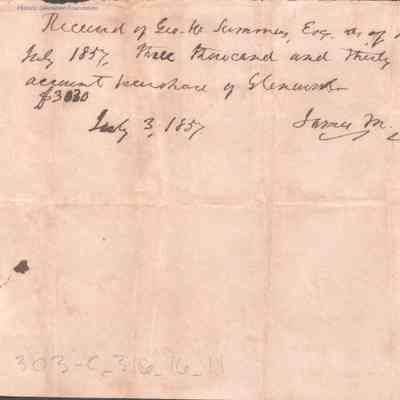 Historic Glenwood Foundation
Received of Geo. W. Summers, Esq. as of
July 1857, three thousand and thirty
account purchase of Glenwood
$3030
July 3, 1857
James M.
303-C_316_16_11